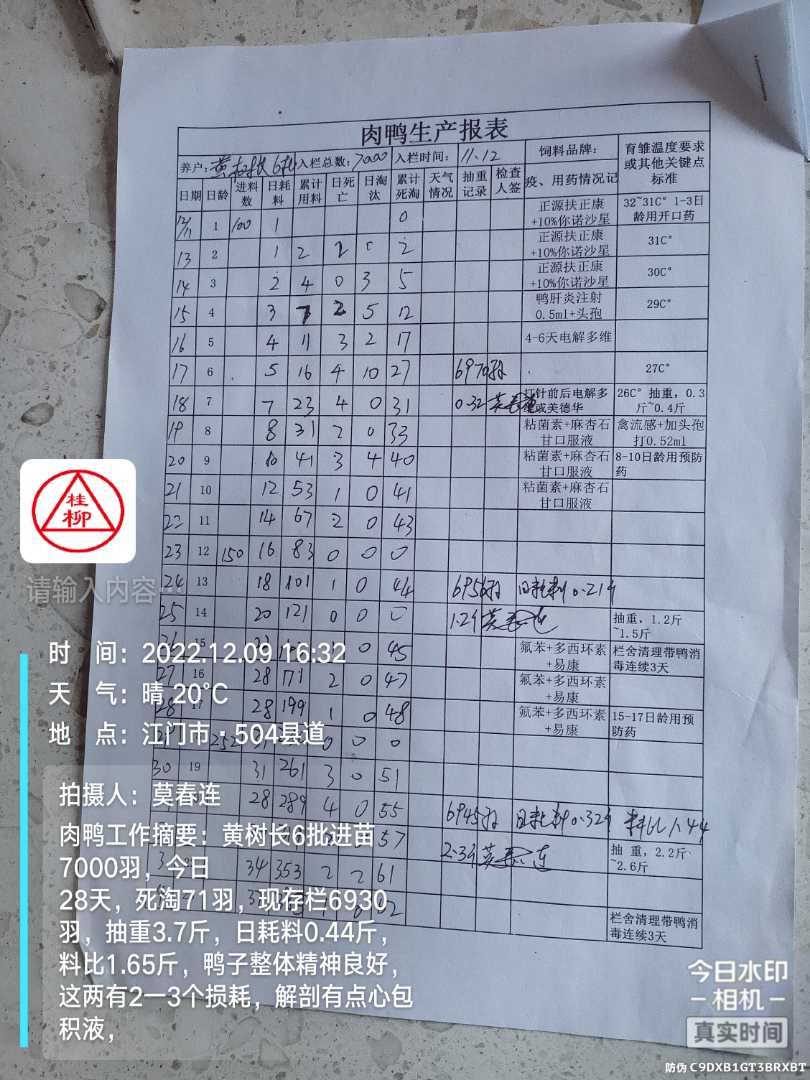 肉鸭生产报表
养户: 黄树长6批 入栏总数: 7000 入栏时间: 11.12 饲料品牌: 育雏温度要求或其他关键点标准
日期 日龄 进料数 日耗料 累计用料 日死亡 日淘汰 累计死淘 天气情况 抽重记录 检查人签 疫、用药情况记
12/11 1 100 1 0 正源扶正康+10%你诺沙星 32~31C° 1-3日龄用开口药
13 2 1 2 2 0 2 正源扶正康+10%你诺沙星 31C°
14 3 2 4 0 3 5 正源扶正康+10%你诺沙星 30C°
15 4 3 7 2 5 12 鸭肝炎注射0.5ml+头孢 29C°
16 5 4 11 3 2 17 4-6天电解多维
17 6 5 16 4 10 27 6970羽 27C°
18 7 7 23 4 0 31 0.32 莫春连 打针前后电解多维或美德华 26C° 抽重, 0.3斤~0.4斤
19 8 8 31 2 0 33 粘菌素+麻杏石甘口服液 禽流感+加头孢打0.52ml
20 9 10 41 3 4 40 粘菌素+麻杏石甘口服液 8-10日龄用预防药
21 10 12 53 1 0 41 粘菌素+麻杏石甘口服液
22 11 14 67 2 0 43
23 12 150 16 83 0 0 0
24 13 18 101 1 0 44 6956羽 日耗料0.21斤
25 14 20 121 0 0 0 1.2斤 莫春连 抽重, 1.2斤~1.5斤
26 15 45 氟苯+多西环素+易康 栏舍清理带鸭消毒连续3天
27 16 28 171 2 0 47 氟苯+多西环素+易康
28 17 28 199 1 0 48 氟苯+多西环素+易康 15-17日龄用预防药
252 0 0 0
30 19 31 261 3 0 51
28 289 4 0 55 6945羽 日耗料0.32斤 料比1.44
57 2.3斤 莫春连 抽重, 2.2斤~2.6斤
34 353 2 2 61
62 栏舍清理带鸭消毒连续3天
桂柳
请输入内容…
时 间: 2022.12.09 16:32
天 气: 晴 20℃
地 点: 江门市·504县道
拍摄人: 莫春连
肉鸭工作摘要: 黄树长6批进苗
7000羽, 今日
28天, 死淘71羽, 现存栏6930
羽, 抽重3.7斤, 日耗料0.44斤,
料比1.65斤, 鸭子整体精神良好,
这两有2一3个损耗, 解剖有点心包
积液,
今日水印
-相机-
真实时间
防伪 C9DXB1GT3BRXBT